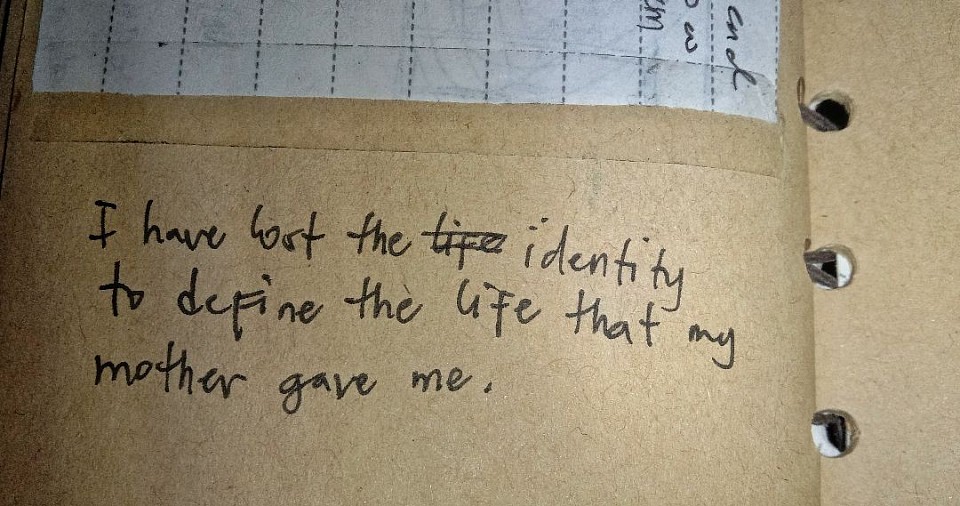 end
ow
um
I have lost the life identity
to define the life that my
mother gave me.